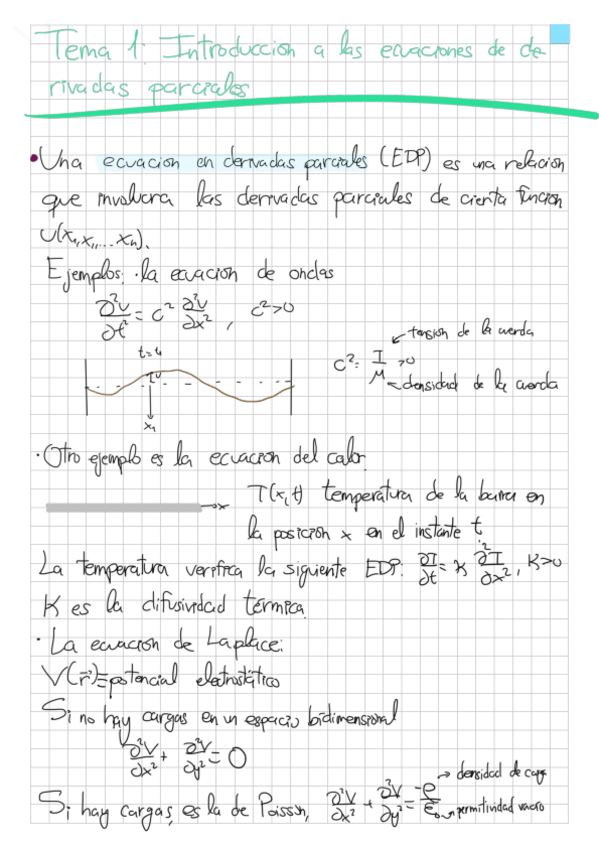 Tema 1: Introduccion a las ecuaciones de de
rivadas parciales
• Una ecuacion en derivadas parciales (EDP) es una relacion
que involucra las derivadas parciales de cierta funcion
U(x₁,x₂,... xₙ).
Ejemplos: · la ecuacion de ondas
∂²U/∂t² = c² ∂²U/∂x² , c²>0
tension de la cuerda
t=t₀
c²= T/μ >0
densidad de la cuerda
U
x₁
· Otro ejemplo es la ecuacion del calor.
T(x,t) temperatura de la barra en
x
la posicion x en el instante t.
La temperatura verifica la siguiente EDP: ∂T/∂t = K ∂²T/∂x², K>0
K es la difusividad térmica.
· La ecuacion de Laplace:
V(r⃗)≡potencial electrostático
Si no hay cargas en un espacio bidimensional
∂²V/∂x² + ∂²V/∂y² = 0
densidad de carga
Si hay cargas, es la de Poisson, ∂²V/∂x² + ∂²V/∂y² = -ρ/ε₀
permitividad vacio